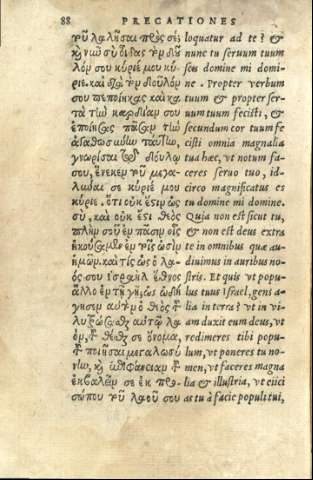 88 PRECATIONES
τοῦ λαλῆσαι πρὸς σέ;
καὶ νῦν σὺ οἶδας τὸν δοῦ
λόν σου κύριέ μου κύ-
ριε. καὶ διὰ τὸν δοῦλόν
σου πεποίηκας καὶ κα
τὰ τὴν καρδίαν σου
ἐποίησας πᾶσαν τὴν
ἀγαθωσύνην ταύτην,
γνωρίσαι τῷ δούλῳ
σου, ἕνεκεν τοῦ μεγα-
λῦναι σε κύριέ μου
κύριε. ὅτι οὐκ ἔστιν ὡς
σύ, καὶ οὐκ ἔστι θεὸς
πλήν σου ἐν πᾶσιν οἷς
ἠκούσαμεν ἐν τοῖς ὠσὶν
ἡμῶν. καὶ τίς ὡς ὁ λα-
ός σου ἰσραὴλ ἔθνος
ἄλλο ἐν τῇ γῇ, ὡς ὡδή
γησεν αὐτὸν ὁ θεὸς τοῦ
λυτρώσασθαι αὐτῷ λα
όν, τοῦ θέσθαι σε ὄνομα,
τοῦ ποιῆσαι μεγαλωσύ
νην, καὶ ἐπιφάνειαν τοῦ
ἐκβαλεῖν σε ἐκ προ-
σώπου τοῦ λαοῦ σου
loquatur ad te? &
nunc tu seruum tuum
scis domine mi domi-
ne. Propter verbum
tuum & propter ser-
uum tuum fecisti, &
secundum cor tuum fe
cisti omnia magnalia
tua hæc, vt notum fa-
ceres seruo tuo, id-
circo magnificatus es
tu domine mi domine.
Quia non est sicut tu,
& non est deus extra
te in omnibus quæ au-
diuimus in auribus no-
stris. Et quis vt popu-
lus tuus Israel, gens a-
lia in terra? vt in vi-
am duxit eum deus, vt
redimeres tibi popu-
lum, vt poneres tu no-
men, vt faceres magna
lia & illustria, vt eiici
as tu à facie populi tui,